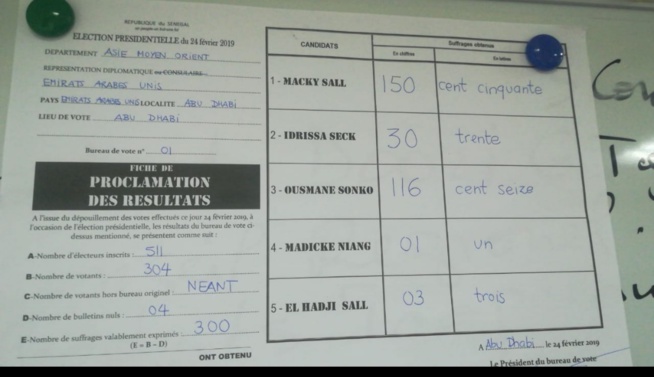 REPUBLIQUE du SENEGAL
ELECTION PRESIDENTIELLE du 24 février 2019
DEPARTEMENT ASIE MOYEN ORIENT
REPRESENTATION DIPLOMATIQUE ou CONSULAIRE
EMIRATS ARABES UNIS
PAYS EMIRATS ARABES UNIS LOCALITE ABU DHABI
LIEU DE VOTE ABU DHABI
Bureau de vote n° 01
FICHE DE
PROCLAMATION
DES RESULTATS
A l'issue du dépouillement des votes effectués ce jour 24 février 2019, à
l'occasion de l'élection présidentielle, les résultats du bureau de vote ci-
dessus mentionné, se présentent comme suit :
A-Nombre d'électeurs inscrits : 511
B-Nombre de votants : 304
C-Nombre de votants hors bureau originel : NEANT
D-Nombre de bulletins nuls : 04
E-Nombre de suffrages valablement exprimés : 300
(E = B - D)
ONT OBTENU
CANDIDATS
Suffrages obtenus
En chiffres
En lettres
1 - MACKY SALL 150 cent cinquante
2 - IDRISSA SECK 30 trente
3 - OUSMANE SONKO 116 cent seize
4 - MADICKE NIANG 01 un
5 - EL HADJI SALL 03 trois
A Abu Dhabi le 24 février 2019
Le Président du bureau de vote